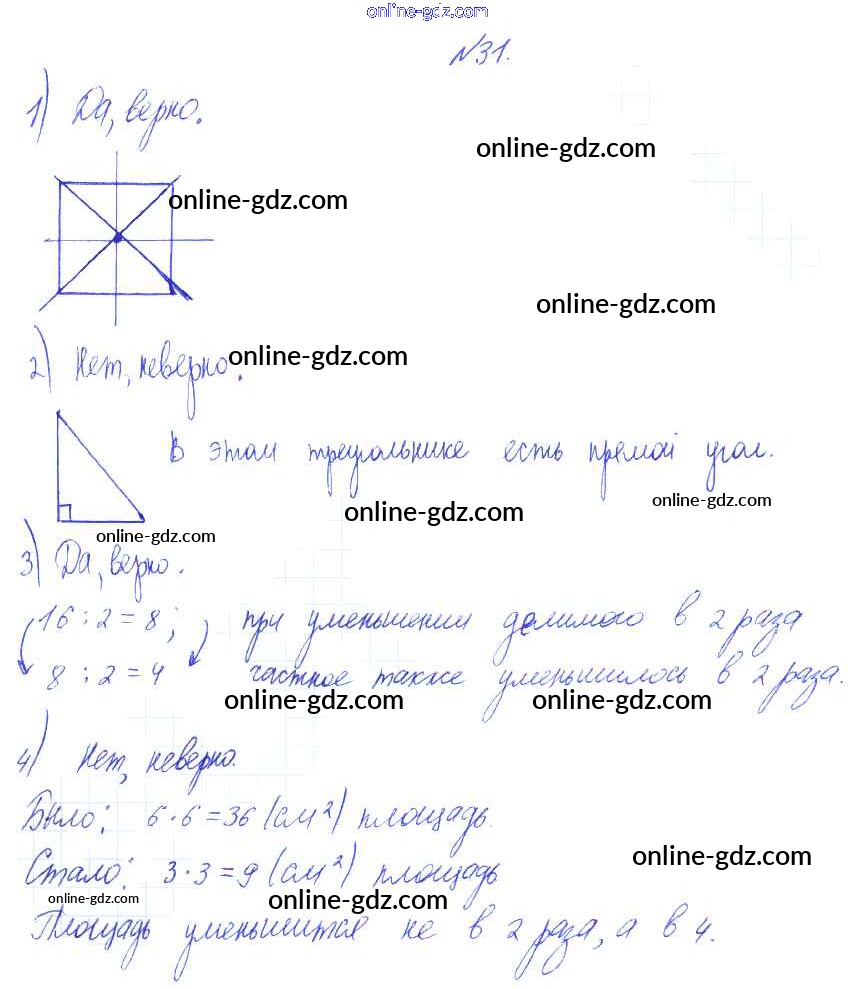 online-gdz.com
№31.
1) Да, верно.
online-gdz.com
online-gdz.com
online-gdz.com
2) Нет, неверно.
online-gdz.com
В этом треугольнике есть прямой угол.
online-gdz.com
online-gdz.com
online-gdz.com
3) Да, верно.
16 : 2 = 8; при уменьшении делимого в 2 раза
8 : 2 = 4 частное также уменьшилось в 2 раза.
online-gdz.com
online-gdz.com
4) Нет, неверно.
Было: 6 · 6 = 36 (см²) площадь.
Стало: 3 · 3 = 9 (см²) площадь
online-gdz.com
online-gdz.com
online-gdz.com
Площадь уменьшится не в 2 раза, а в 4.